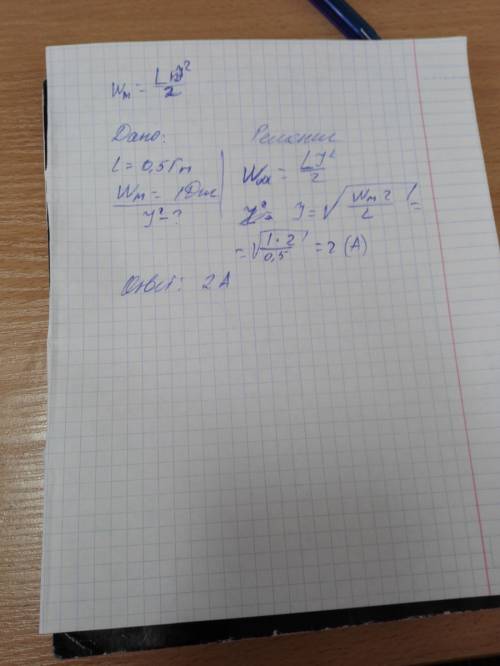 Wм = LI²/2
Дано:
L = 0,5 Гн
Wм = 1 Дж
J² - ?
Решение
Wм = LJ²/2
J = √(Wм 2 / L) =
= √(1 · 2 / 0,5) = 2 (А)
Ответ: 2 А